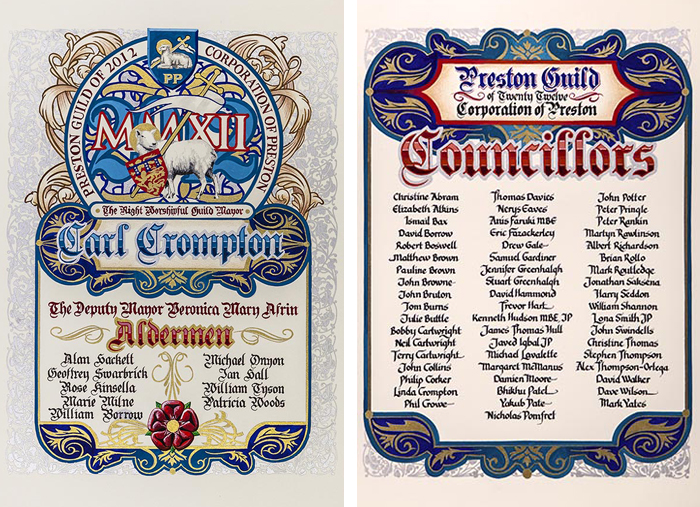 PRESTON GUILD OF 2012 CORPORATION OF PRESTON
PP
MMXII
The Right Worshipful Guild Mayor
Carl Crompton
The Deputy Mayor Veronica Mary Afrin
Aldermen
Alan Hackett
Geoffrey Swarbrick
Rose Kinsella
Marie Milne
William Borrow
Michael Onyon
Ian Hall
William Tyson
Patricia Woods
Preston Guild
of Twenty Twelve
Corporation of Preston
Councillors
Christine Abram
Elizabeth Atkins
Ismail Bax
David Borrow
Robert Boswell
Matthew Brown
Pauline Brown
John Browne
John Bruton
Tom Burns
Julie Buttle
Bobby Cartwright
Neil Cartwright
Terry Cartwright
John Collins
Philip Corker
Linda Crompton
Phil Crowe
Thomas Davies
Nerys Eaves
Anis Faruki MBE
Eric Fazackerley
Drew Gale
Samuel Gardiner
Jennifer Greenhalgh
Stuart Greenhalgh
David Hammond
Trevor Hart
Kenneth Hudson MBE JP
James Thomas Hull
Javed Iqbal JP
Michael Lavalette
Margaret McManus
Damien Moore
Bhikhu Patel
Yakub Patel
Nicholas Pomfret
John Potter
Peter Pringle
Peter Rankin
Martyn Rawlinson
Albert Richardson
Brian Rollo
Mark Routledge
Jonathan Saksena
Harry Seddon
William Shannon
Lona Smith JP
John Swindells
Christine Thomas
Stephen Thompson
Alex Thompson-Ortega
David Walker
Dave Wilson
Mark Yates